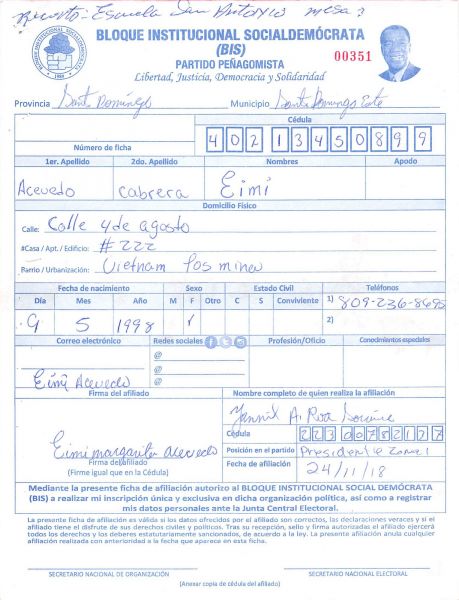 Recinto - Escuela San Antonio mesa 3
BLOQUE INSTITUCIONAL SOCIALDEMÓCRATA
(BIS)
PARTIDO PEÑAGOMISTA
Libertad, Justicia, Democracia y Solidaridad
00351
Provincia Santo Domingo Municipio Santo Domingo Este
Cédula
Número de ficha 402 1345089 9
1er. Apellido 2do. Apellido Nombres Apodo
Acevedo Cabrera Eimi
Domicilio Físico
Calle: Calle 4 de agosto
#Casa / Apt. / Edificio: # 222
Parrio / Urbanización: Vietnam Los mina
Fecha de nacimiento Sexo Estado Civil Teléfonos
Día Mes Año M F Otro C S Conviviente 1) 809-236-8695
9 5 1998 2)
Correo electrónico Redes sociales Profesión/Oficio Conocimientos especiales
@
@
Eimi Acevedo @
Firma del afiliado Nombre completo de quien realiza la afiliación
Yannil A. Rosa
Cédula
223 0078217 7
Eimi margarita acevedo Posición en el partido Presidente Zonal
Firma del afiliado Fecha de afiliación 24/11/18
(Firme igual que en la Cédula)
Mediante la presente ficha de afiliación autorizo al BLOQUE INSTITUCIONAL SOCIAL DEMÓCRATA
(BIS) a realizar mi inscripción única y exclusiva en dicha organización política, así como a registrar
mis datos personales ante la Junta Central Electoral.
La presente ficha de afiliación es válida si los datos ofrecidos por el afiliado son correctos, las declaraciones veraces y si el
afiliado tiene el disfrute de sus derechos civiles y políticos. Tras su recepción, sello y firma autorizadas el afiliado ejercerá
todos los derechos y los deberes estatutariamente sancionados, de acuerdo a la ley. La presente afiliación anula cualquier
afiliación realizada con anterioridad a la fecha que aparece en esta ficha.
SECRETARIO NACIONAL DE ORGANIZACIÓN SECRETARIO NACIONAL ELECTORAL
(Anexar copia de cédula del afiliado)